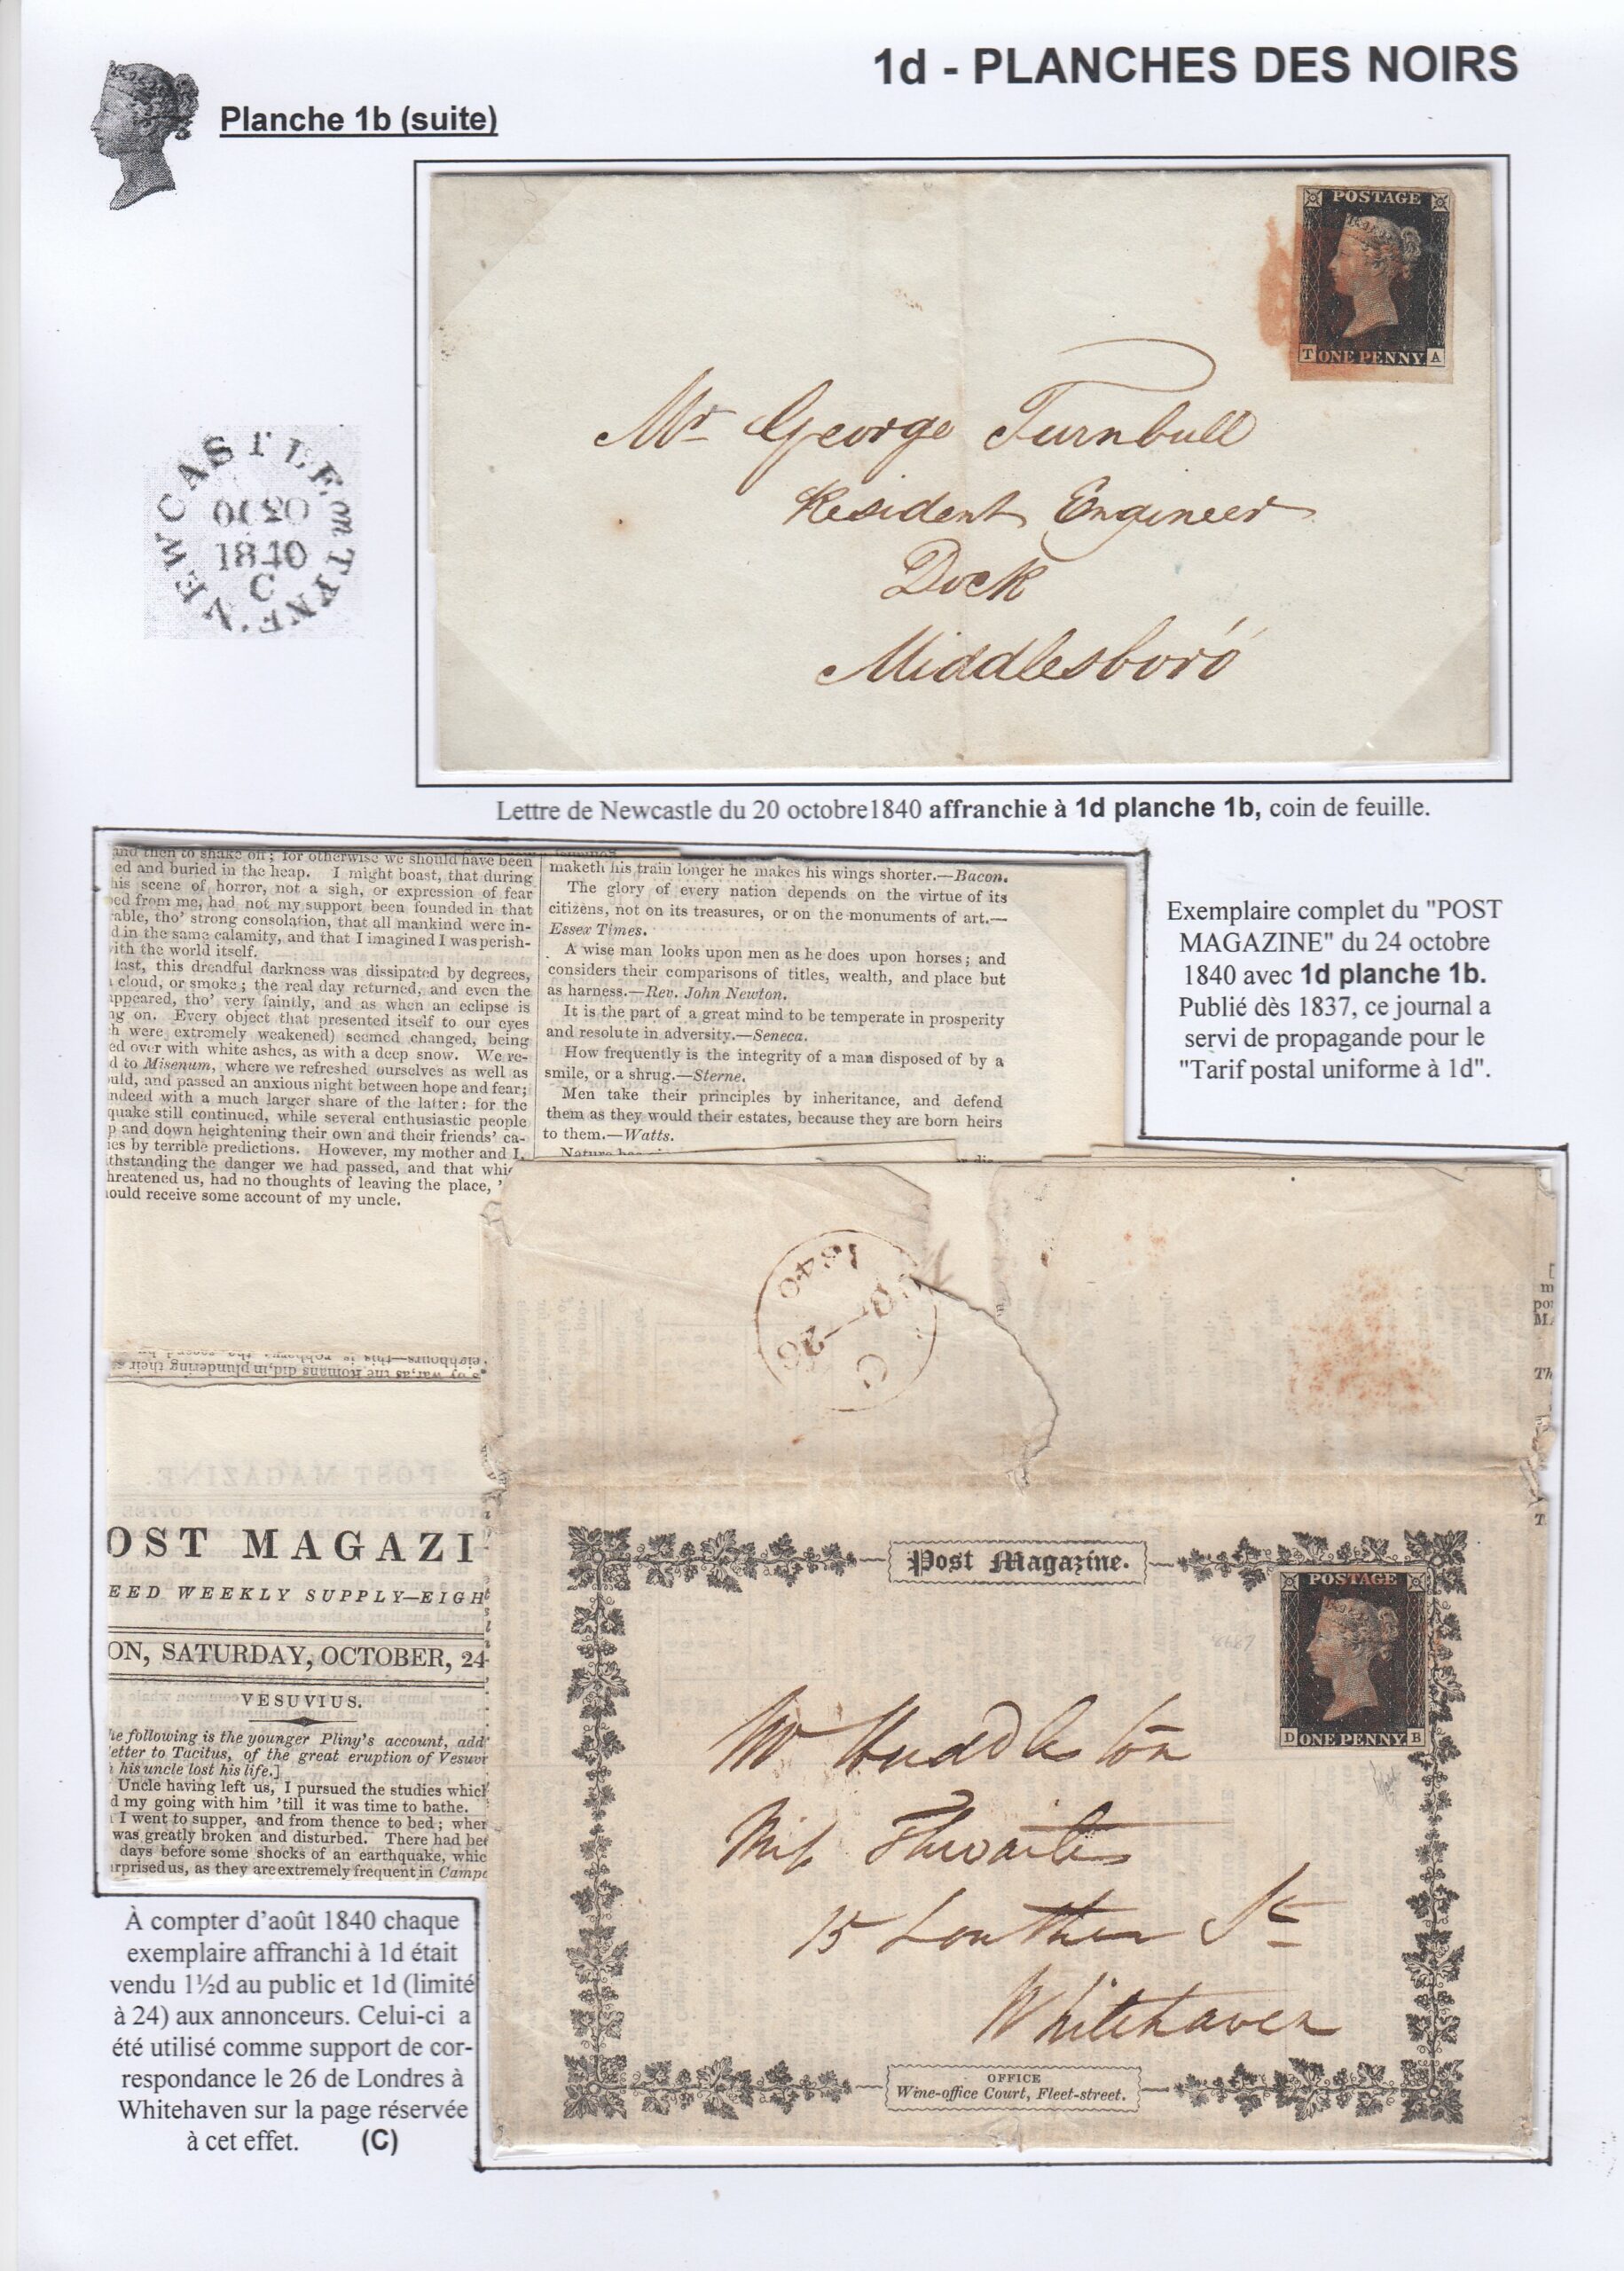 1d - PLANCHES DES NOIRS
Planche 1b (suite)
POSTAGE
T ONE PENNY A
Mr George Turnbull
Resident Engineer
Dock
Middlesboro'
NEWCASTLE on TYNE
OC 20
1840
C
Lettre de Newcastle du 20 octobre1840 affranchie à 1d planche 1b, coin de feuille.
and then to shake off; for otherwise we should have been
ed and buried in the heap. I might boast, that during
his scene of horror, not a sigh, or expression of fear
ed from me, had not my support been founded in that
able, tho' strong consolation, that all mankind were in-
d in the same calamity, and that I imagined I was perish-
ith the world itself.
last, this dreadful darkness was dissipated by degrees,
cloud, or smoke; the real day returned, and even the
appeared, tho' very faintly, and as when an eclipse is
ng on. Every object that presented itself to our eyes
h were extremely weakened) seemed changed, being
ed over with white ashes, as with a deep snow. We re-
d to Misenum, where we refreshed ourselves as well as
ould, and passed an anxious night between hope and fear;
ndeed with a much larger share of the latter: for the
quake still continued, while several enthusiastic people
p and down heightening their own and their friends' ca-
ies by terrible predictions. However, my mother and I,
thstanding the danger we had passed, and that whic
hreatened us, had no thoughts of leaving the place, '
ould receive some account of my uncle.
maketh his train longer he makes his wings shorter.—Bacon.
The glory of every nation depends on the virtue of its
citizens, not on its treasures, or on the monuments of art.—
Essex Times.
A wise man looks upon men as he does upon horses; and
considers their comparisons of titles, wealth, and place but
as harness.—Rev. John Newton.
It is the part of a great mind to be temperate in prosperity
and resolute in adversity.—Seneca.
How frequently is the integrity of a man disposed of by a
smile, or a shrug.—Sterne.
Men take their principles by inheritance, and defend
them as they would their estates, because they are born heirs
to them.—Watts.
Exemplaire complet du "POST
MAGAZINE" du 24 octobre
1840 avec 1d planche 1b.
Publié dès 1837, ce journal a
servi de propagande pour le
"Tarif postal uniforme à 1d".
C
26
1840
s by war, as the Romans did, in plundering their
eighbours—this is robbery; the second by
OST MAGAZI
EED WEEKLY SUPPLY—EIGH
ON, SATURDAY, OCTOBER, 24
VESUVIUS.
he following is the younger Pliny's account, add
etter to Tacitus, of the great eruption of Vesuv
his uncle lost his life.]
Uncle having left us, I pursued the studies which
d my going with him 'till it was time to bathe.
I went to supper, and from thence to bed; wher
was greatly broken and disturbed. There had bee
days before some shocks of an earthquake, whic
rprised us, as they are extremely frequent in Campa
Post Magazine.
POSTAGE
D ONE PENNY B
8687
Mr Huddleston
Miss Thwaites
15 Lowther St
Whitehaven
OFFICE
Wine-office Court, Fleet-street.
À compter d'août 1840 chaque
exemplaire affranchi à 1d était
vendu 1½d au public et 1d (limité
à 24) aux annonceurs. Celui-ci a
été utilisé comme support de cor-
respondance le 26 de Londres à
Whitehaven sur la page réservée
à cet effet. (C)